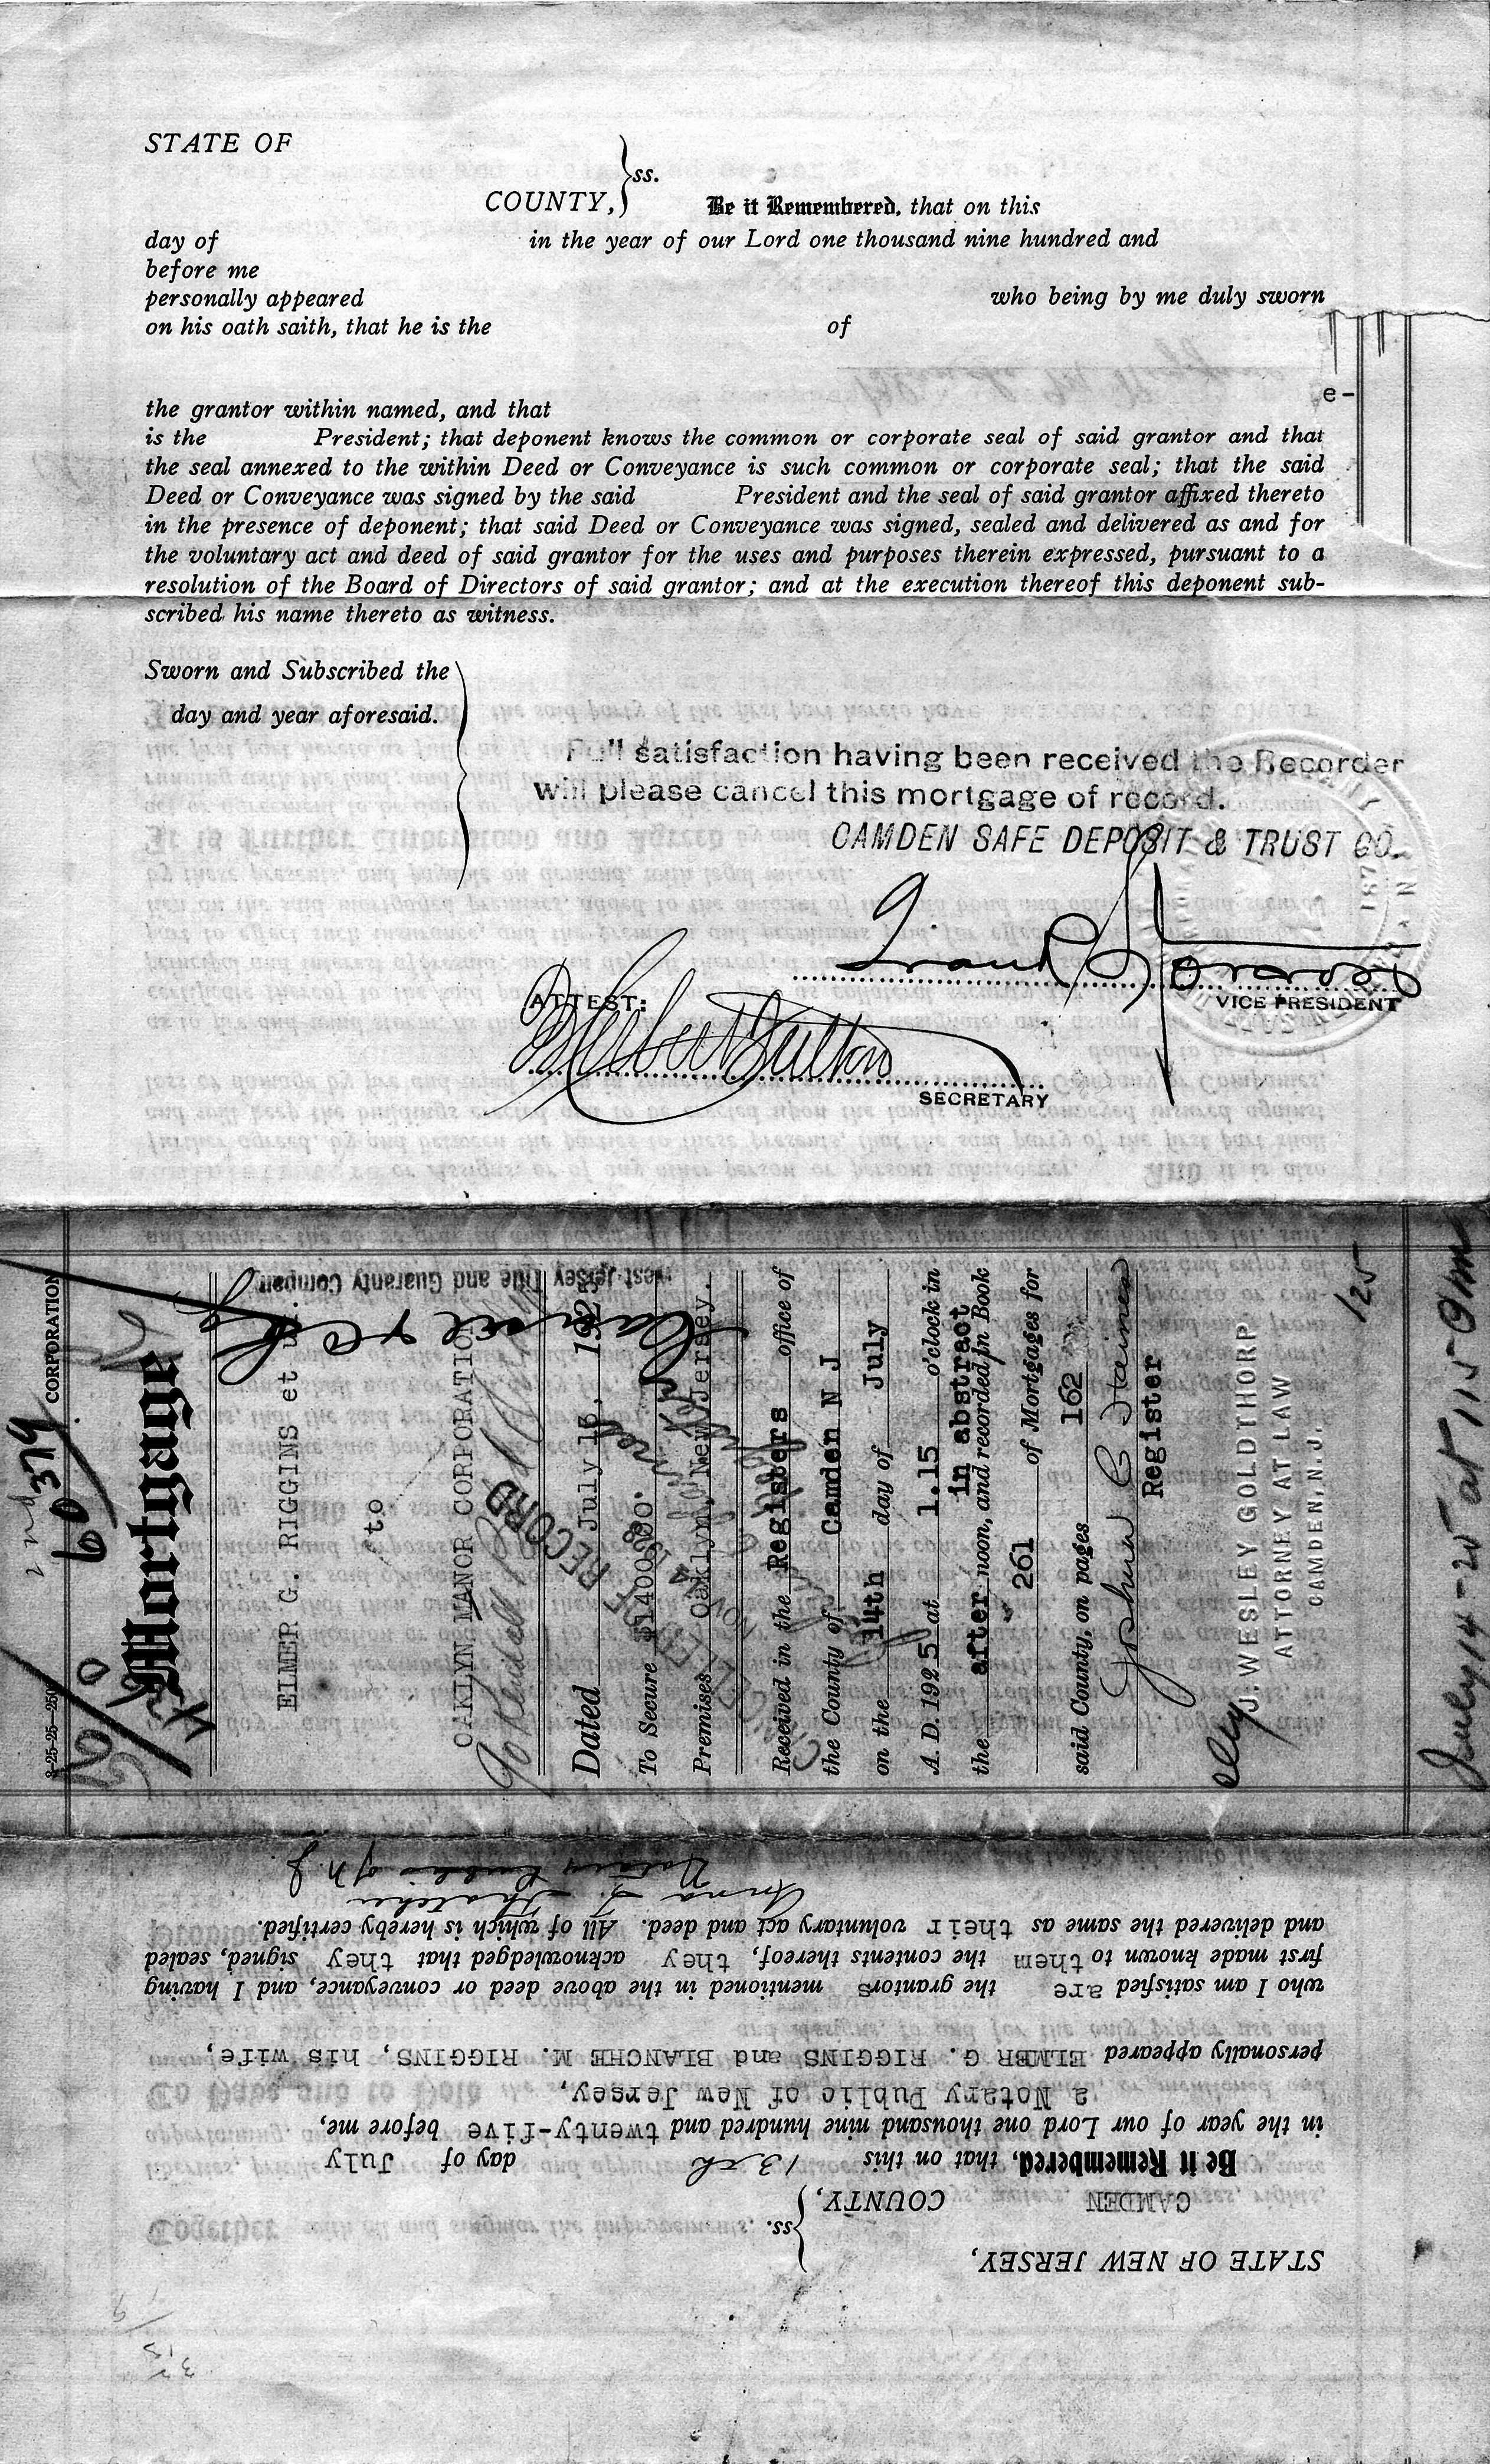 STATE OF
COUNTY, } ss.
Be it Remembered, that on this
day of in the year of our Lord one thousand nine hundred and
before me
personally appeared who being by me duly sworn
on his oath saith, that he is the of
e-
the grantor within named, and that
is the President; that deponent knows the common or corporate seal of said grantor and that
the seal annexed to the within Deed or Conveyance is such common or corporate seal; that the said
Deed or Conveyance was signed by the said President and the seal of said grantor affixed thereto
in the presence of deponent; that said Deed or Conveyance was signed, sealed and delivered as and for
the voluntary act and deed of said grantor for the uses and purposes therein expressed, pursuant to a
resolution of the Board of Directors of said grantor; and at the execution thereof this deponent sub-
scribed his name thereto as witness.
Sworn and Subscribed the
day and year aforesaid.
Full satisfaction having been received the Recorder
will please cancel this mortgage of record.
CAMDEN SAFE DEPOSIT & TRUST CO.
VICE PRESIDENT
ATTEST:
SECRETARY
8-25-25-250 CORPORATION
2nd 379
60
Mortgage
ELMER G. RIGGINS et ux.
to
OAKLYN MANOR CORPORATION
West Jersey Title and Guaranty Company
Dated July 13, 1925
To Secure $1400.00.
Premises Oaklyn, New Jersey.
CANCELLED OF RECORD
NOV 4 1928
Received in the Registers office of
the County of Camden N J
on the 14th day of July
A. D. 1925 at 1.15 o'clock in
the after noon, and recorded in Book
in abstract
261 of Mortgages for
said County, on pages 162
Register
J. WESLEY GOLDTHORP
ATTORNEY AT LAW
CAMDEN, N. J.
125
July 14-25 at 1 15 P m
STATE OF NEW JERSEY,
CAMDEN COUNTY, } ss.
Be it Remembered, that on this 13th day of July
in the year of our Lord one thousand nine hundred and twenty-five before me,
a Notary Public of New Jersey,
personally appeared ELMER G. RIGGINS and BLANCHE M. RIGGINS, his wife,
who I am satisfied are the grantors mentioned in the above deed or conveyance, and I having
first made known to them the contents thereof, they acknowledged that they signed, sealed
and delivered the same as their voluntary act and deed. All of which is hereby certified.
Anna F. Thatcher
Notary Public of N.J.